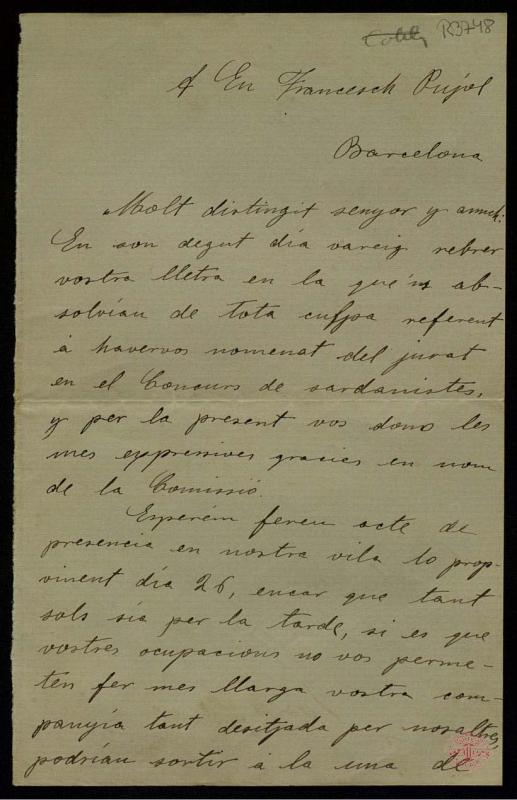 R3748
A En Francesch Pujol
Barcelona
Molt distingit senyor y amich:
En son degut día vareig rebrer
vostra lletra en la que'ns ab-
solvían de tota culpa referent
á havervos nomenat del jurat
en el Concurs de sardanistes,
y per la present vos dono les
mes expressives gracies en nom
de la Comissió.
Esperém fereu acte de
presencia en nostra vila lo prop-
vinent día 26, encar que tant
sols sía per la tarde, si es que
vostres ocupacions no vos perme-
tén fer mes llarga vostra com-
panyía tant desitjada per nosaltres,
podrían sortir á la una de